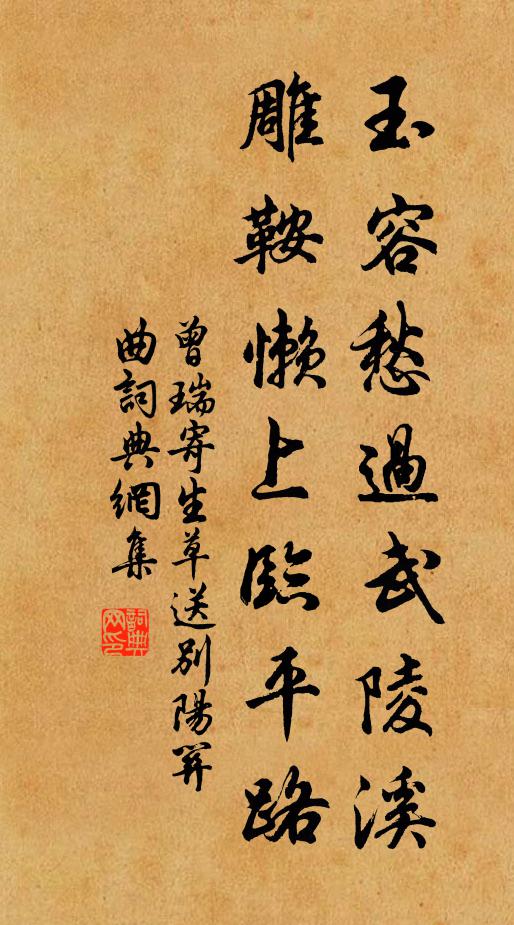 玉容愁過武陵溪
雕鞍懶上臨平路
曾瑞寄生草送别陽關
曲詞典網集
詞典网印